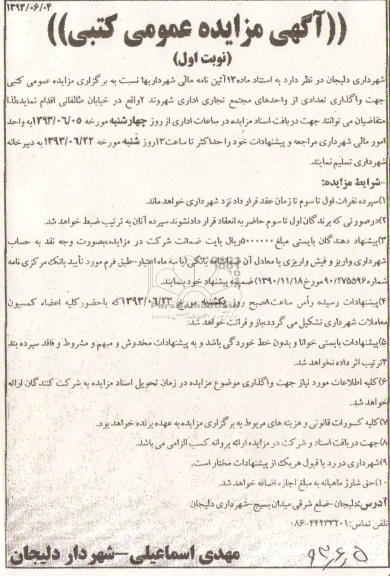 ۱۳۹۳/۰۶/۰۴
((آگهی مزایده عمومی کتبی))
(نوبت اول)
شهرداری دلیجان در نظر دارد به استناد ماده۱۳آئین نامه مالی شهرداریها نسبت به برگزاری مزایده عمومی کتبی
جهت واگذاری تعدادی از واحدهای مجتمع تجاری اداری شهروند ۲واقع در خیابان طالقانی اقدام نماید،لذا
متقاضیان می توانند جهت دریافت اسناد مزایده در ساعات اداری از روز چهارشنبه مورخه ۱۳۹۳/۰۶/۰۵به واحد
امور مالی شهرداری مراجعه و پیشنهادات خود را حداکثر تا ساعت۱۳روز شنبه مورخه ۱۳۹۳/۰۶/۲۲ به دبیرخانه
شهرداری تسلیم نمایند.
–شرایط مزایده:
۱)سپرده نفرات اول تا سوم تا زمان عقد قرار داد نزد شهرداری خواهد ماند.
۲)درصورتی که برندگان اول تا سوم حاضر به انعقاد قرار دادنشوند سپرده آنان به ترتیب ضبط خواهد شد.
۳)پیشنهاد دهندگان بایستی مبلغ۵۰۰۰۰۰۰۰ریال بابت ضمانت شرکت در مزایده،بصورت وجه نقد به حساب
شهرداری واریز و فیش واریزی یا معادل آن ضمانتنامه بانکی(با سه ماه اعتبار–طبق فرم مورد تأیید بانک مرکزی نامه
شماره۹۰/۲۷۵۵۹۶مورخ۱۳۹۰/۱۱/۱۸) ضمیمه پیشنهاد خود بنمایند.
۴)پیشنهادات رسیده رأس ساعت۸صبح روز یکشنبه مورخ ۱۳۹۳/۰۶/۲۳که باحضور کلیه اعضاء کمسیون
معاملات شهرداری تشکیل می گردد،باز و قرائت خواهد شد.
۵)پیشنهادات بایستی خوانا و بدون خط خوردگی باشد و به پیشنهادات مخدوش و مبهم و مشروط و فاقد سپرده بند
۳ترتیب اثر داده نخواهد شد.
۶)کلیه اطلاعات مورد نیاز جهت واگذاری موضوع مزایده در زمان تحویل اسناد مزایده به شرکت کنندگان ارائه
خواهد شد.
۷)کلیه کسورات قانونی و هزینه های مربوط به برگزاری مزایده به عهده برنده خواهد بود.
۸)جهت دریافت اسناد و شرکت در مزایده ارائه پروانه کسب الزامی می باشد.
۹)شهرداری در رد یا قبول هریک از پیشنهادات مختار است.
۱۰)حق شارژ ماهیانه به مبلغ اجاره اضافه خواهد شد.
آدرس:دلیجان–ضلع شرقی میدان بسیج–شهرداری دلیجان
تلفن تماس:۴۴۲۳۳۲۰۱–۰۸۶
مهدی اسماعیلی–شهردار دلیجان
۹۳،۶،۵